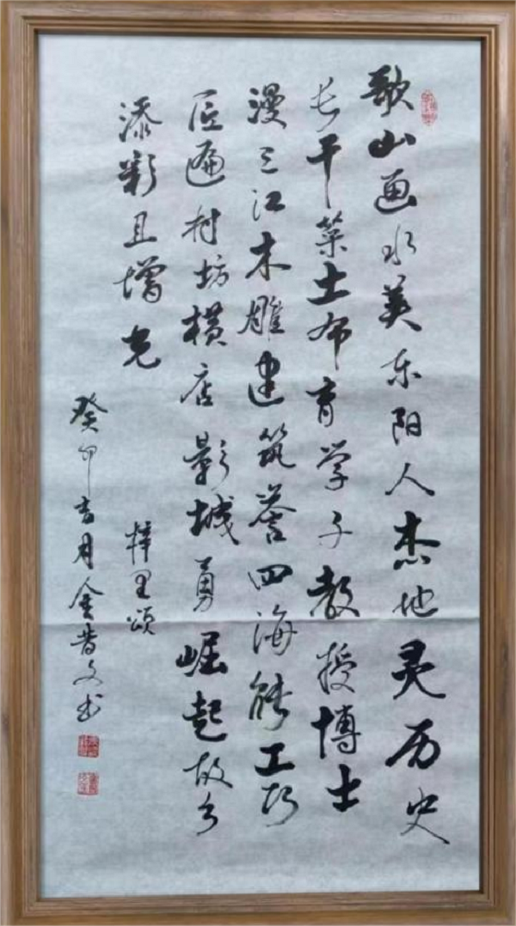 歌山画水美东阳人杰地灵历史
长干菜土布育学子教授博士
漫三江木雕建筑誉四海能工巧
匠遍村坊横店影城勇崛起故乡
添彩且增光
梓里颂
癸甲吉月金昔文书